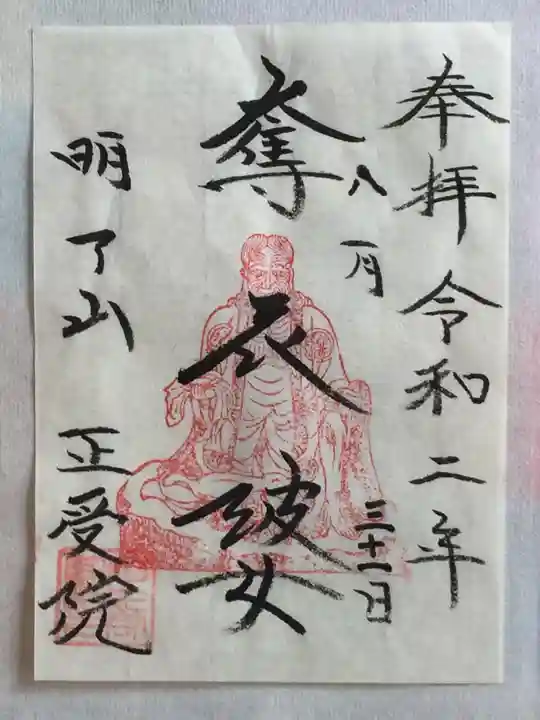 奉拝 令和二年
八月三十一日
奪衣婆
明了山 正受院